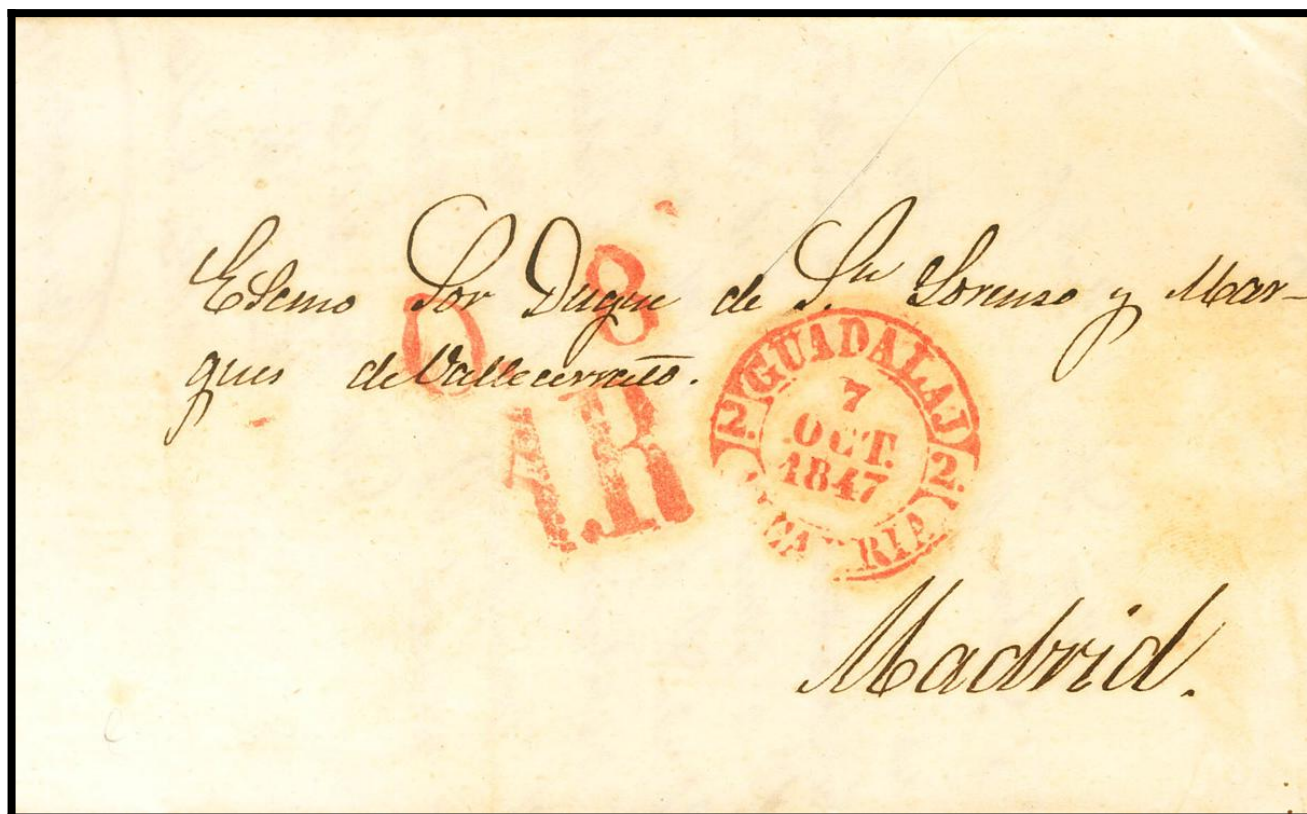 Escmo Sor Duque de Sn Lorenzo y Mar-
ques de Vallecerrato.
8
O
A.R
GUADALAJ
2. 2.
7
OCT.
1847
CA RIA
Madrid.